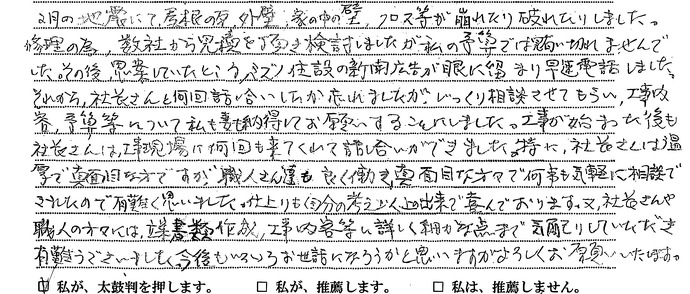 2月の地震にて屋根の瓦、外壁、家の中の壁、クロス等が崩れたり破れたりしました。
修理の為、数社から見積を頂き検討しましたが私の予算では賄い切れませんで
した。その後思案していたところ、ミズノ住設の新聞広告が眼に留まり早速電話しました。
それから、社長さんと何回話し合いしたか忘れましたが、じっくり相談させてもらい、工事内
容、予算等について私も妻も納得してお願いすることにしました。工事が始まった後も
社長さんは、工事現場に何回も来てくれて話し合いができました。特に、社長さんは温
厚で真面目な方ですが、職人さん達も良く働き、真面目な方々で何事も気軽に相談で
きましたので有難く思いました。仕上りも自分の考え以上の出来で喜んでおります。又、社長さんや
職人の方々には、書類作成、工事内容等に詳しく細かな点まで気配りしていただき
有難うございました。今後もいろいろお世話になろうかと思いますがよろしくお願いいたします。
私が、太鼓判を押します。 私が、推薦します。 私は、推薦しません。